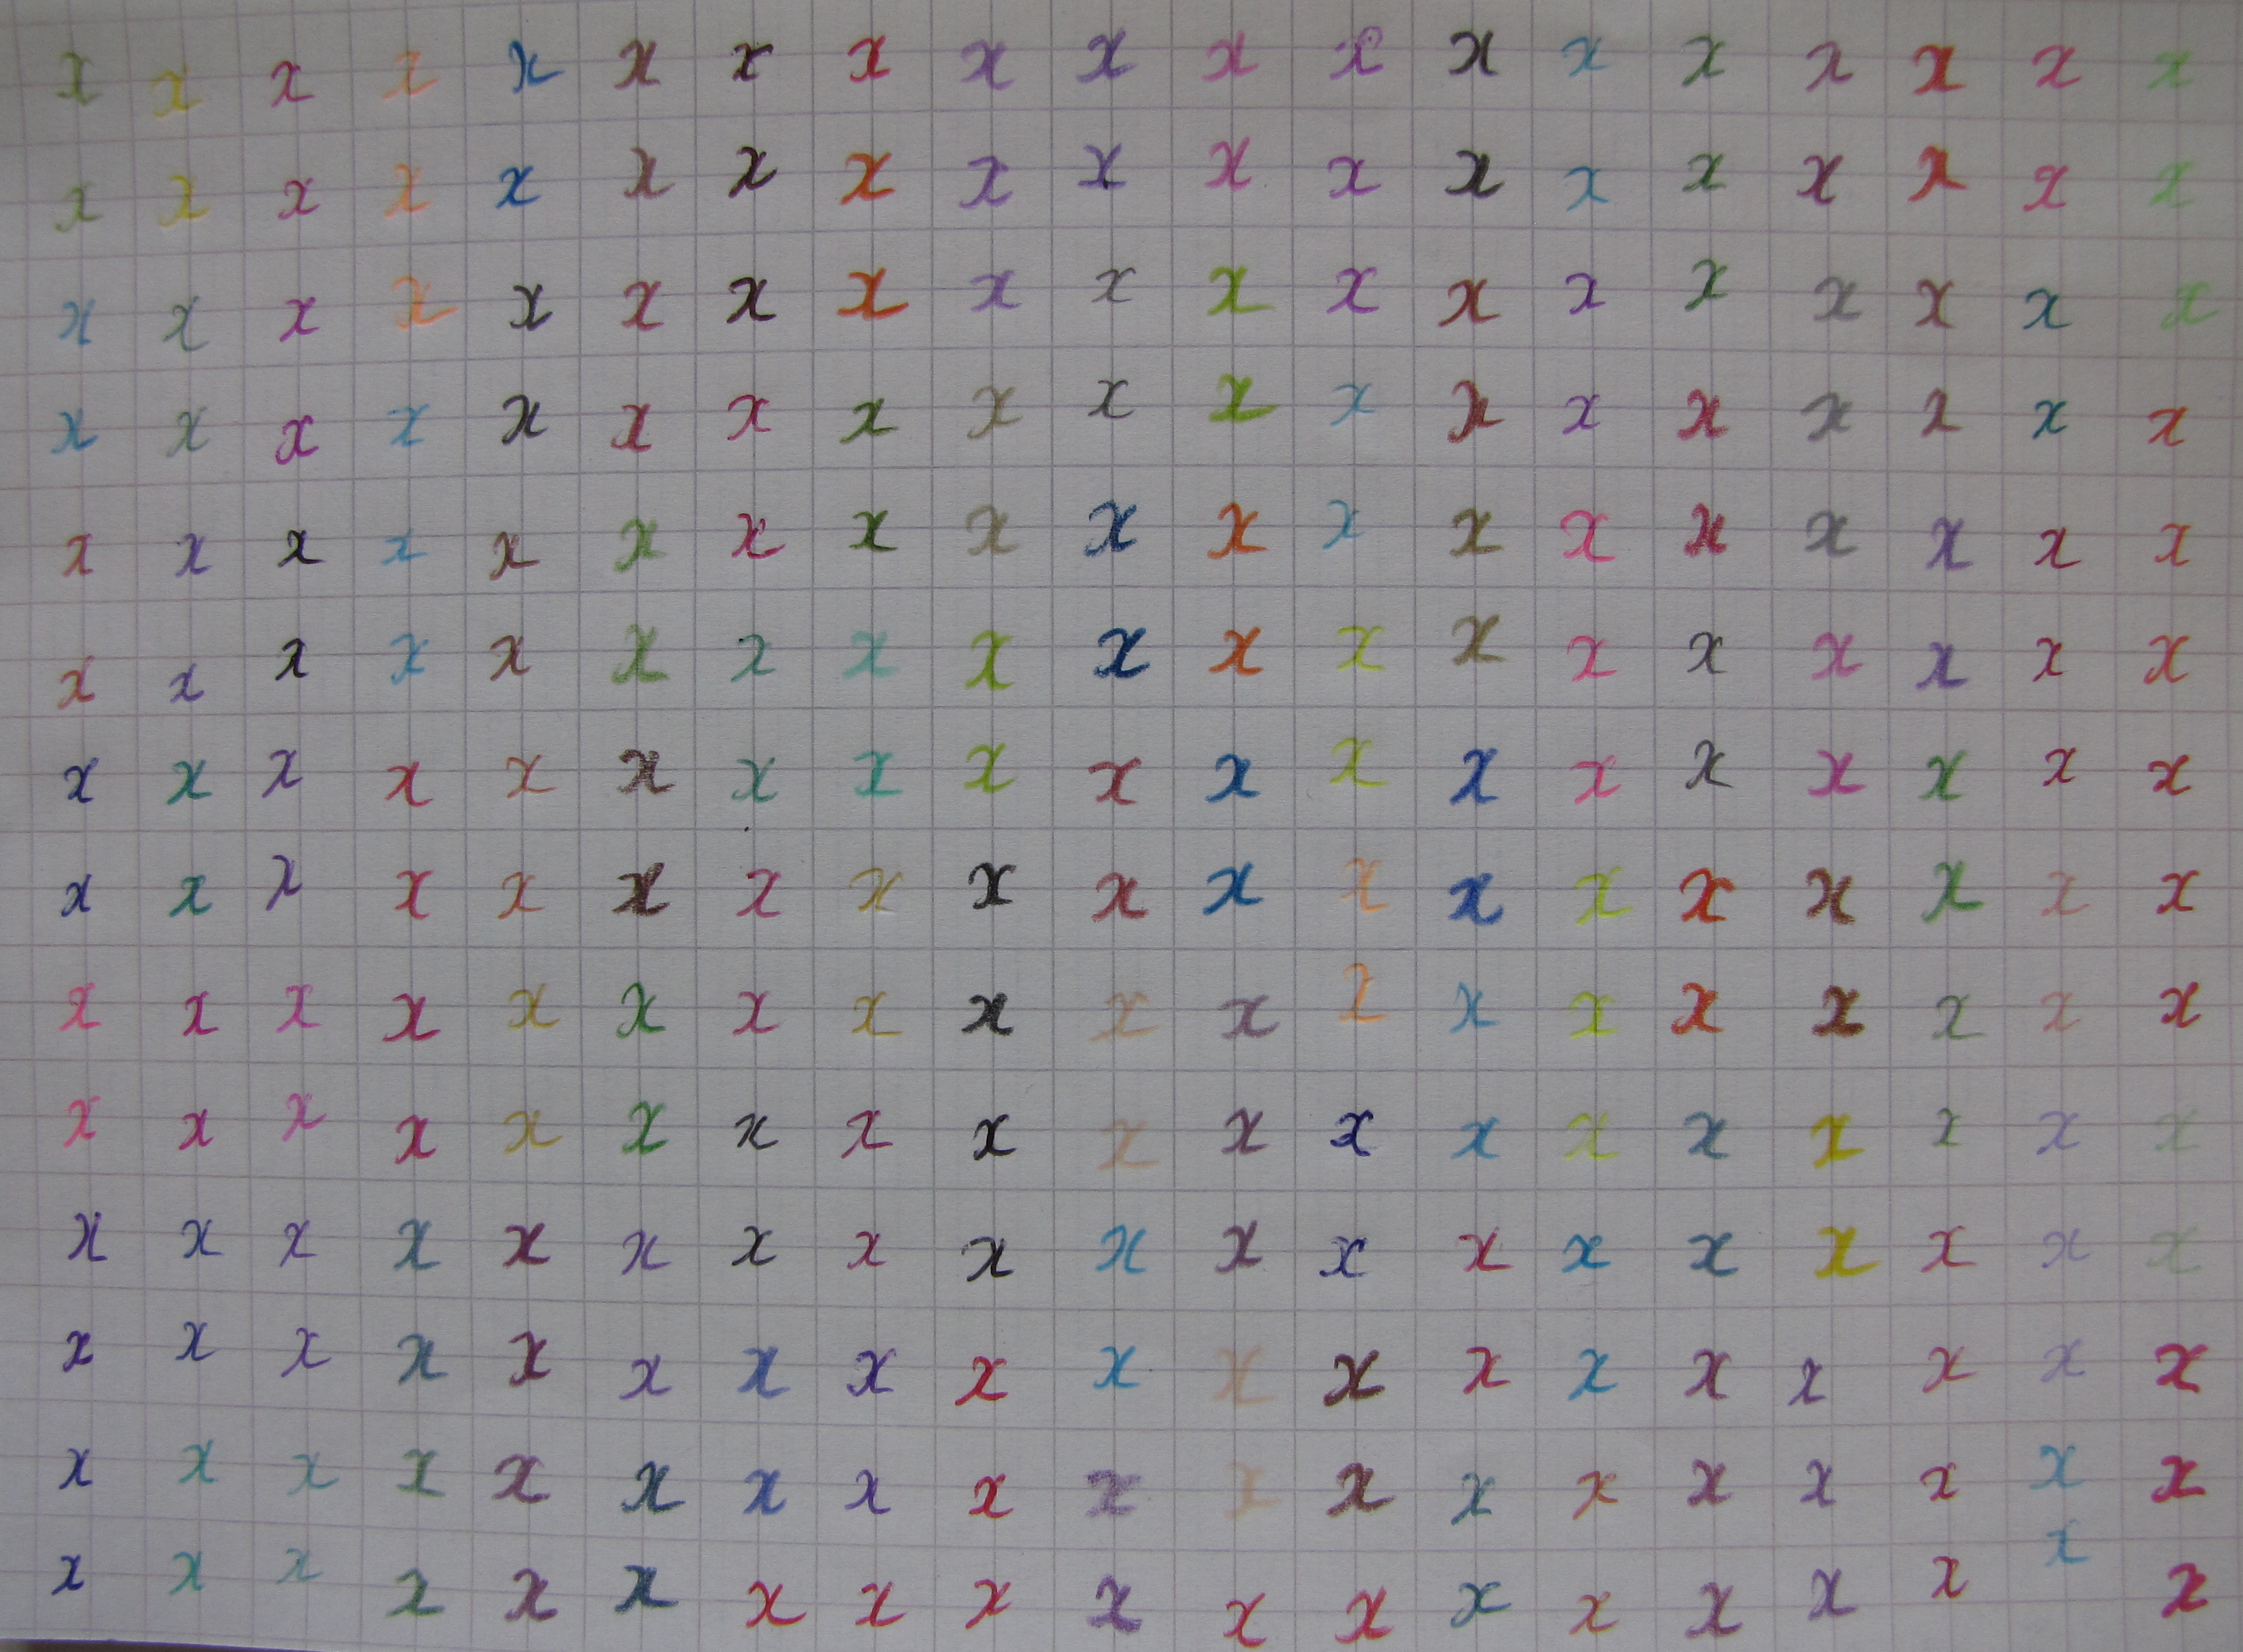 x x x x x x x x x x x x x x x x x x x
x x x x x x x x x x x x x x x x x x x
x x x x x x x x x x x x x x x x x x x
x x x x x x x x x x x x x x x x x x x
x x x x x x x x x x x x x x x x x x x
x x x x x x x x x x x x x x x x x x x
x x x x x x x x x x x x x x x x x x x
x x x x x x x x x x x x x x x x x x x
x x x x x x x x x x x x x x x x x x x
x x x x x x x x x x x x x x x x x x x
x x x x x x x x x x x x x x x x x x x
x x x x x x x x x x x x x x x x x x x
x x x x x x x x x x x x x x x x x x x
x x x x x x x x x x x x x x x x x x x